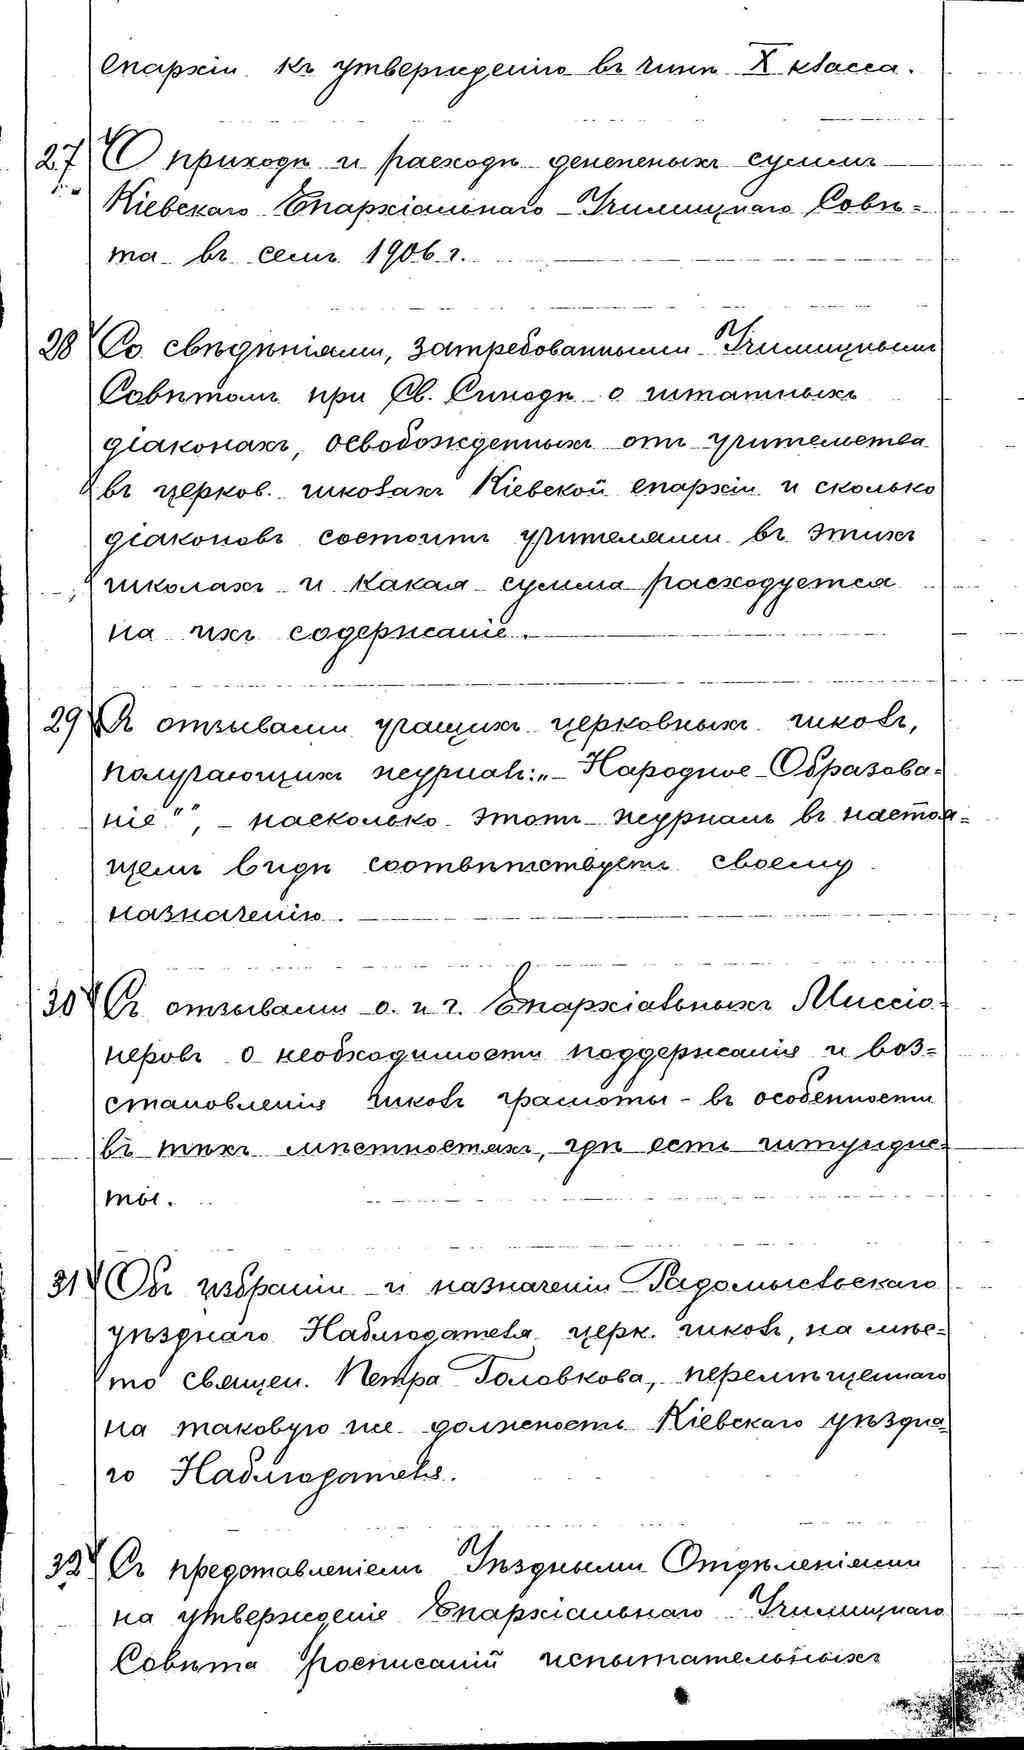 епархіи къ утвержденію въ чинѣ X класса.
27 О приходѣ и расходѣ денежныхъ суммъ
Кіевскаго Епархіальнаго Училищнаго Совѣ=
та въ семъ 1906 г.
28 Со свѣдѣніями, затребованными Училищнымъ
Совѣтомъ при Св. Синодѣ о штатныхъ
діаконахъ, освобожденныхъ отъ учительства
въ церков. школахъ Кіевской епархіи и сколько
діаконовъ состоитъ учителями въ этихъ
школахъ и какая сумма расходуется
на ихъ содержаніе.
29 Съ отзывами учащихъ церковныхъ школъ,
получающихъ журналъ: „Народное Образова=
ніе", – насколько этотъ журналъ въ настоя=
щемъ видѣ соотвѣтствуетъ своему
назначенію.
30 Съ отзывами о. и г. Епархіальныхъ Миссіо=
неровъ о необходимости поддержанія и воз=
становленія школъ грамоты – въ особенности
въ тѣхъ мѣстностяхъ, гдѣ есть штундис=
ты.
31 Объ избраніи и назначеніи Радомысльскаго
уѣзднаго Наблюдателя церк. школъ, на мѣс=
то священ. Петра Головкова, перемѣщеннаго
на таковую же должность Кіевскаго уѣздна=
го Наблюдателя.
32 Съ представленіемъ Уѣздными Отдѣленіями
на утвержденіе Епархіальнаго Училищнаго
Совѣта росписаній испытательныхъ